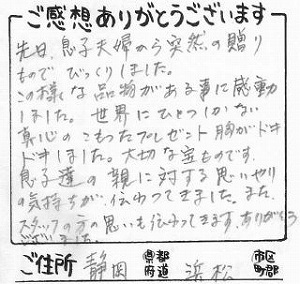 ご感想ありがとうございます
先日、息子夫婦から突然の贈り
もので、びっくりしました。
この様な品物がある事に感動
しました。世界にひとつしかない
真心のこもったプレゼント胸がドキ
ドキしました。大切な宝ものです。
息子達の親に対する思いやり
の気持ちが、伝わってきました。また、
スタッフの方の思いも伝わってきます。ありがとう
ございました。
ご住所 静岡 都道府県 浜松 市区町郡